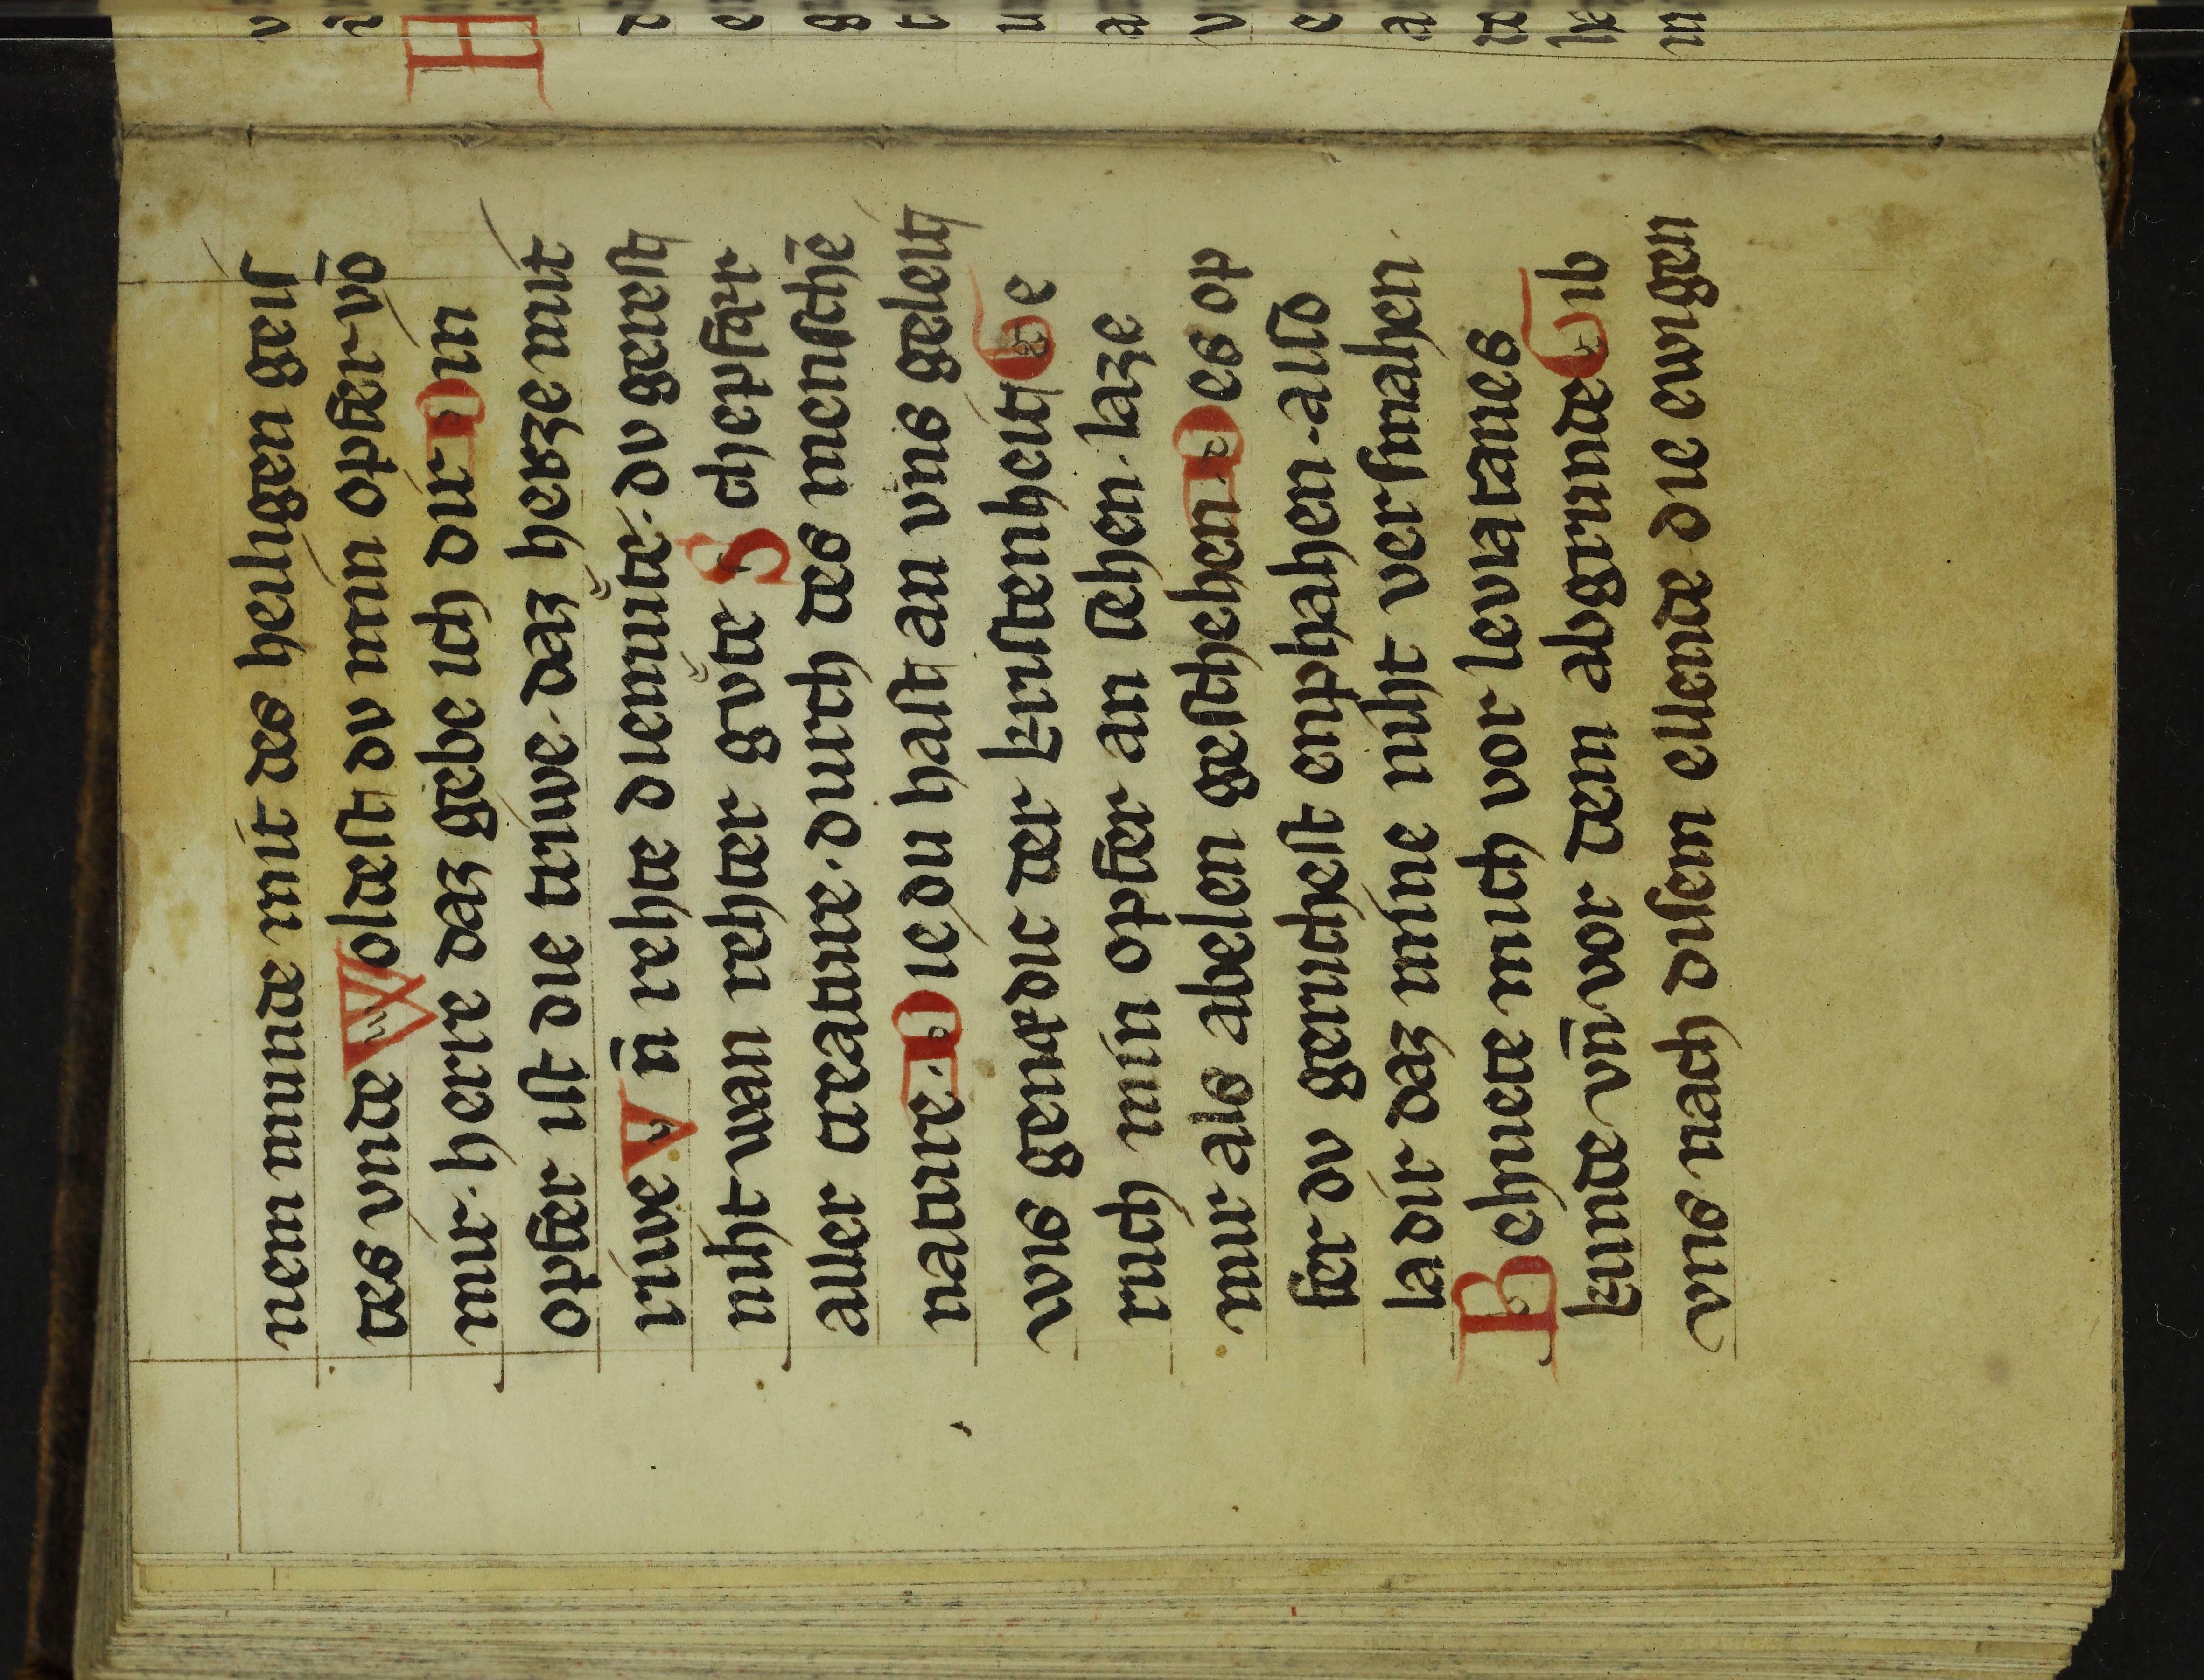 nem munde mit des heiligen geiſ
tes vnde Woldeſt dv min opfer vō
mir· herre daz gebe ich dir Din
opfer iſt die triwe· daz herze mit
riwe Vn̄ rehte diemůte· dv gereſt
niht wan rehter gv̊te Schepfær
aller creature· durch des menſchē
nature· Die du haſt an vns geleit
wis genædic der kriſtenheit Ge
ruch min opfer an ſehen· laze
mir als abelen geſchehen Des op
fer dv gerucheſt enphahen· alſo
la dir daz mine niht verſmahen·
Behuete mich vor leviatanes
kunde vn̄ vor dem abgrunde Gib
vns nach diſem ellende die ewigen